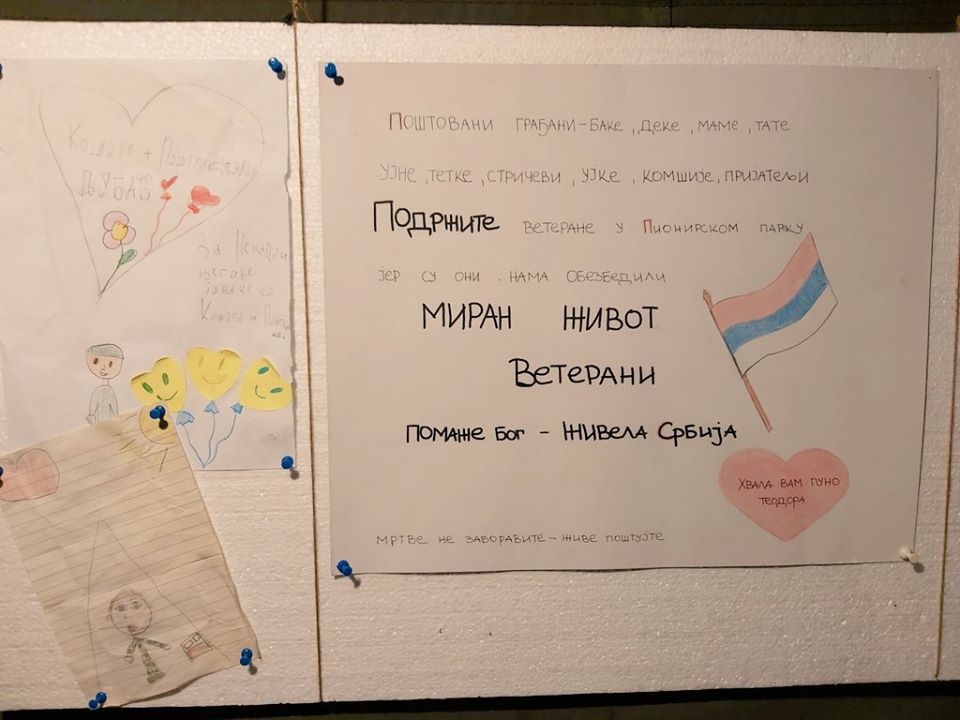 Кошаре + Паштрик
ЉУБАВ
За Ненад
његове
јунаке са
Кошара и Пашт
ПОШТОВАНИ ГРАЂАНИ-БАКЕ, ДЕКЕ, МАМЕ, ТАТЕ
УЈНЕ, ТЕТКЕ, СТРИЧЕВИ, УЈКЕ, КОМШИЈЕ, ПРИЈАТЕЉИ
ПОДРЖИТЕ ВЕТЕРАНЕ У ПИОНИРСКОМ ПАРКУ
ЈЕР СУ ОНИ . НАМА ОБЕЗБЕДИЛИ
МИРАН ЖИВОТ
ВЕТЕРАНИ
ПОМАЖЕ БОГ - ЖИВЕЛА СРБИЈА
ХВАЛА ВАМ ПУНО
ТЕОДОРА
МРТВЕ НЕ ЗАБОРАВИТЕ - ЖИВЕ ПОШТУЈТЕ